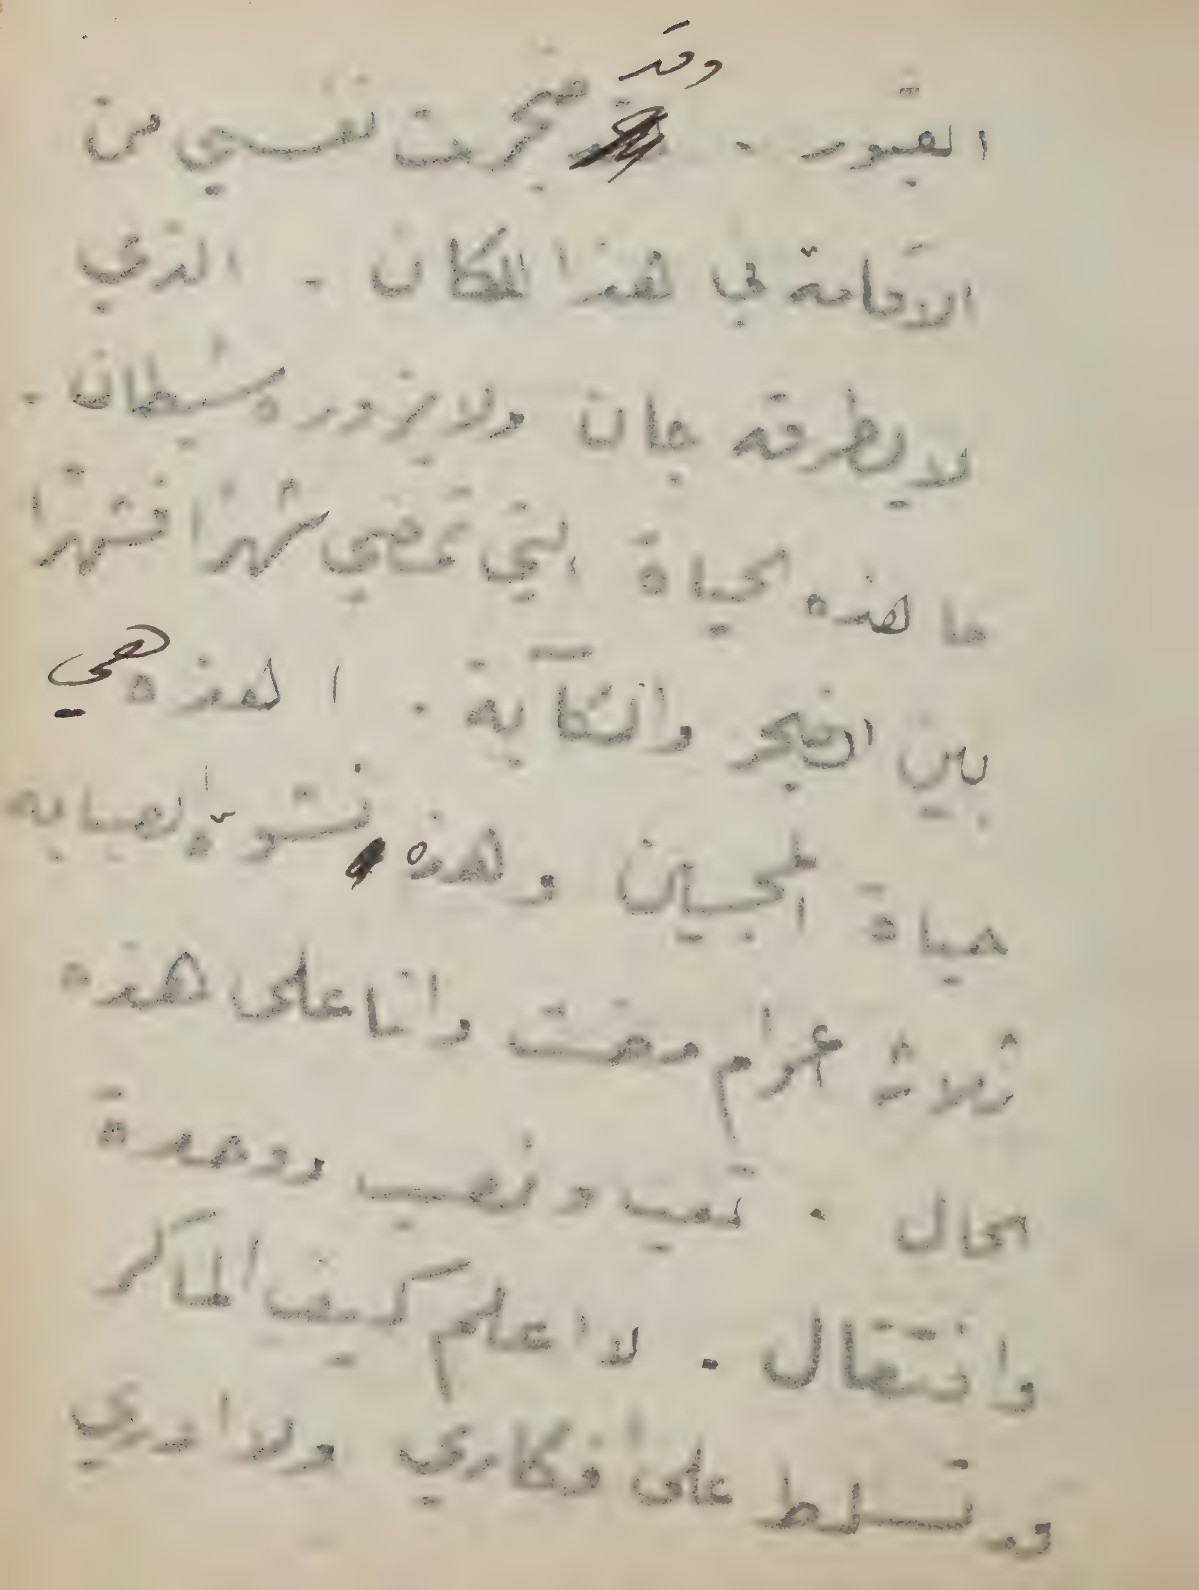 القبور . وقد ضجرت نفسي من
الاقامة في هذا المكان . الذي
لا يطرقه جان ولا يزوره شيطان .
ما هذه الحياة التي تمضي شهرًا فشهرًا
بين الضجر والكآبة . أهذه هي
حياة المحبين وهذه نشوة الصبابه
ثلاثة اعوام مضت وانا على هذه
الحال . تعب ونصب ووحدة
وانتقال . لا اعلم كيف الماكر
قد تسلط على أفكاري ولا ادري